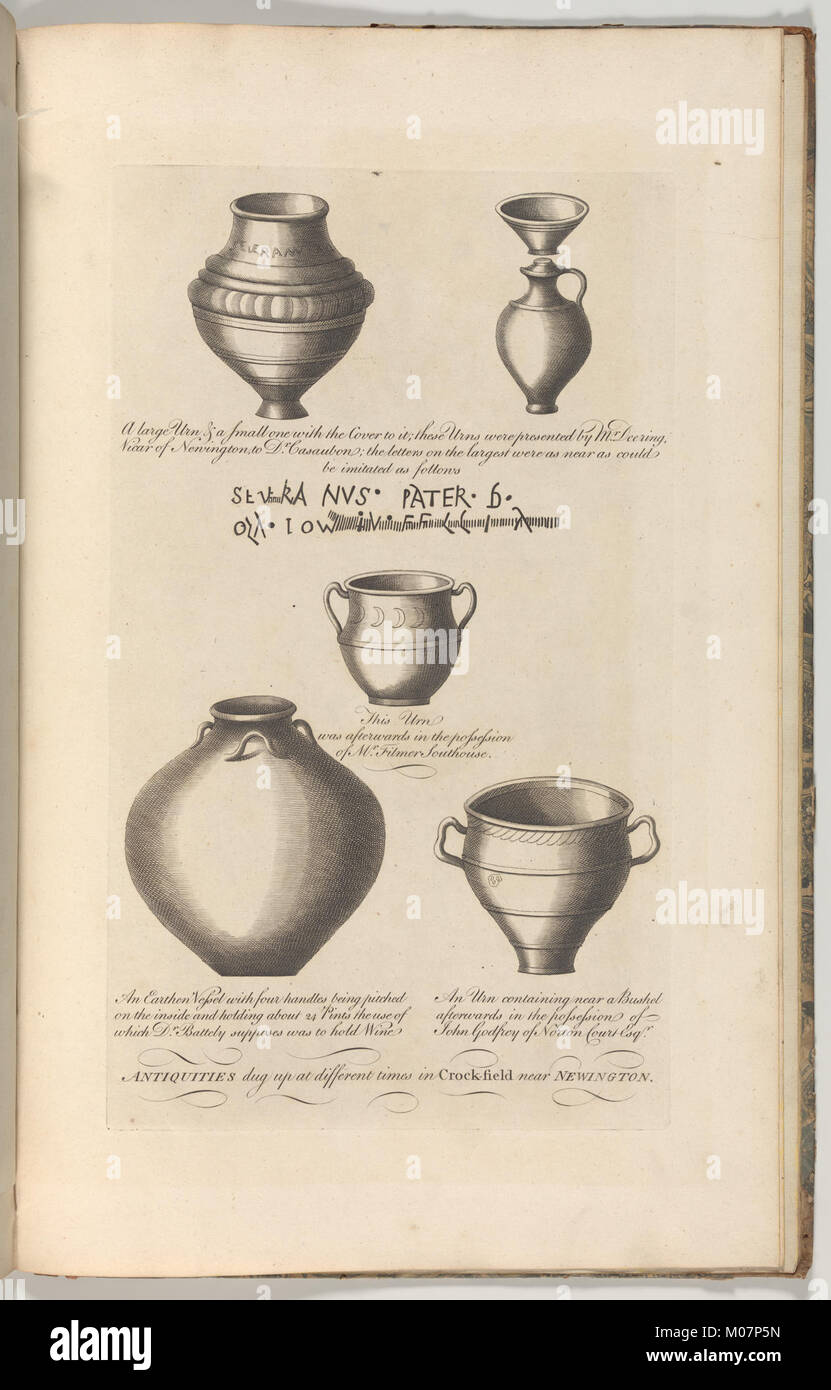 SEVERAN
A large Urn & a small one with the Cover to it; these Urns were presented by Mr. Deering,
Vicar of Newington, to Dr. Casaubon; the letters on the largest were as near as could
be imitated as follows
NVS · PATER ·
This Urn
was afterwards in the possession
of Mr. Filmer Southouse.
An Earthen Vessel with four handles being pitched
on the inside and holding about 24 Pints the use of
which Dr. Battely supposes was to hold Wine
An Urn containing near a Bushel
afterwards in the possession of
John Godfrey of Norton Court Esqr.
ANTIQUITIES dug up at different times in Crock-field near NEWINGTON.
alamy
Image ID: M07P5N
www.alamy.com